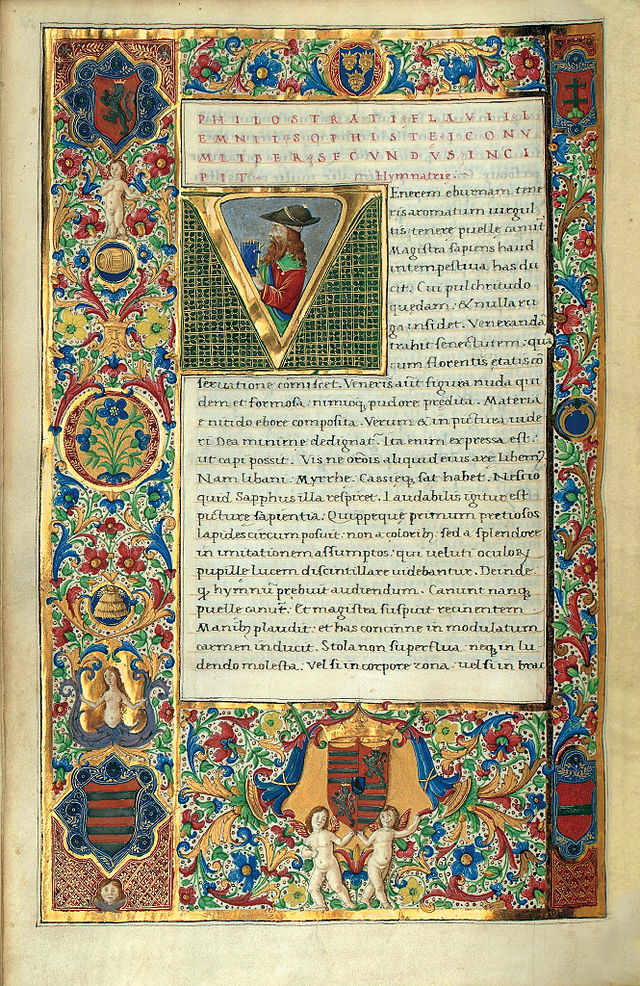 PHILOSTRATI FLAVII L
EMNII SOPHISTE ICONV
M LIBER SECVNDVS INCI
PIT Hymnatrie.
VEnerem eburnam tene
ris aromatum uirgul
tis tenere puelle canūt
Magistra sapiens haud
intempestiua, has du
cit. Cui pulchritudo
quedam: & nulla ru
ga insidet. Veneranda
trahit senectutem: qua
cum florentis etatis cō
seruatione comiscet. Veneris aūt figura nuda qui
dem et formosa: nimioq; pudore predita. Materia
e nitido ebore composita. Verum & in pictura uide
ri Dea minime dedignat. Ita enim expressa est:
ut capi possit. Vis ne orōis aliquid eius are liberr
Nam libani: Myrrhe: Cassieq; sat habet. Nescio
quid Sapphus illa respiret. Laudabilis igitur est
picture sapientia. Quippeque primum pretiosos
lapides circum posuit: non a colorib; sed a splendore
in imitationem assumptos: qui ueluti oculoꝝ
pupille lucem discintillare uidebantur. Deinde
q; hymnū prebuit audiendum. Canunt nanq;
puelle canūt: Et magistra suspicit recinentem
Manib; plaudit: et has concinne in modulatum
carmen inducit. Stola non superflua: neq; in lu
dendo molesta: Vel si in corpore zona: uel si in brac